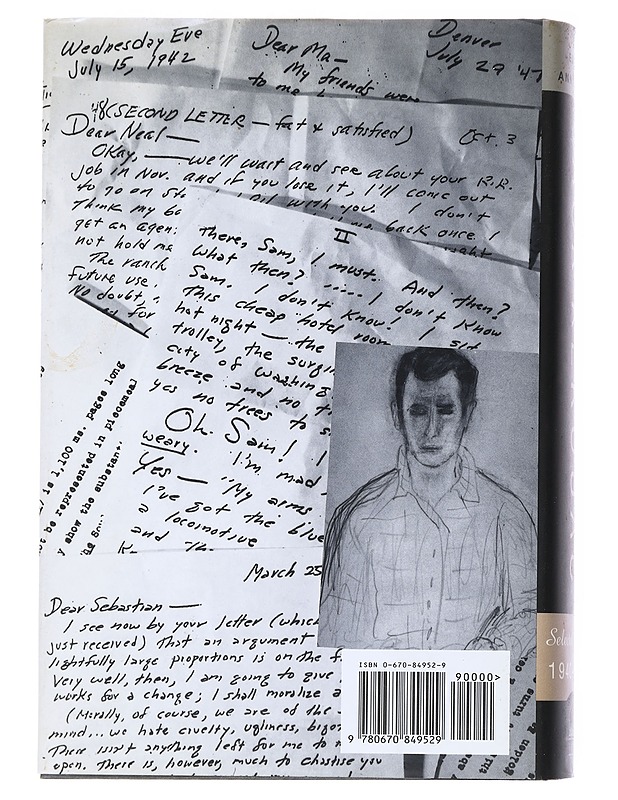 Wednesday Eve
July 15, 1942
Dear Ma—
My friends were
to me
Denver
July 27 '47
(SECOND LETTER — fat & satisfied)
Oct. 3
Dear Neal —
Okay, — we'll wait and see about your R.R.
job in Nov. and if you lose it, I'll come out
to go on
with you. I don't
think my
me back once I
get an agen
right
not hold me
The ranch
future use.
No doubt,
for
II
There, Sam, I must. And then?
What then? ..... I don't know
Sam. I don't know! I sit
This cheap hotel room
hot night — the
trolley, the surgi
city of Washing
breeze and no
yes no trees to
Oh Sam! I
weary. I'm mad
Yes — "My arms
I've got the blue
a locomotive
and
is 1,100 ms. pages long
t be represented in piecemeal
y show the substan
March 25
Dear Sebastian —
I see now by your letter (which
just received) that an argument
lightfully large proportions is on the f
Very well, then, I am going to give
works for a change; I shall moralize a
(Morally, of course, we are of the s
mind... we hate cruelty, ugliness, bigo
There isn't anything left for me to
upon. There is, however, much to chastise you
ISBN 0-670-84952-9
90000>
9 780670 849529
Sele
194
golden